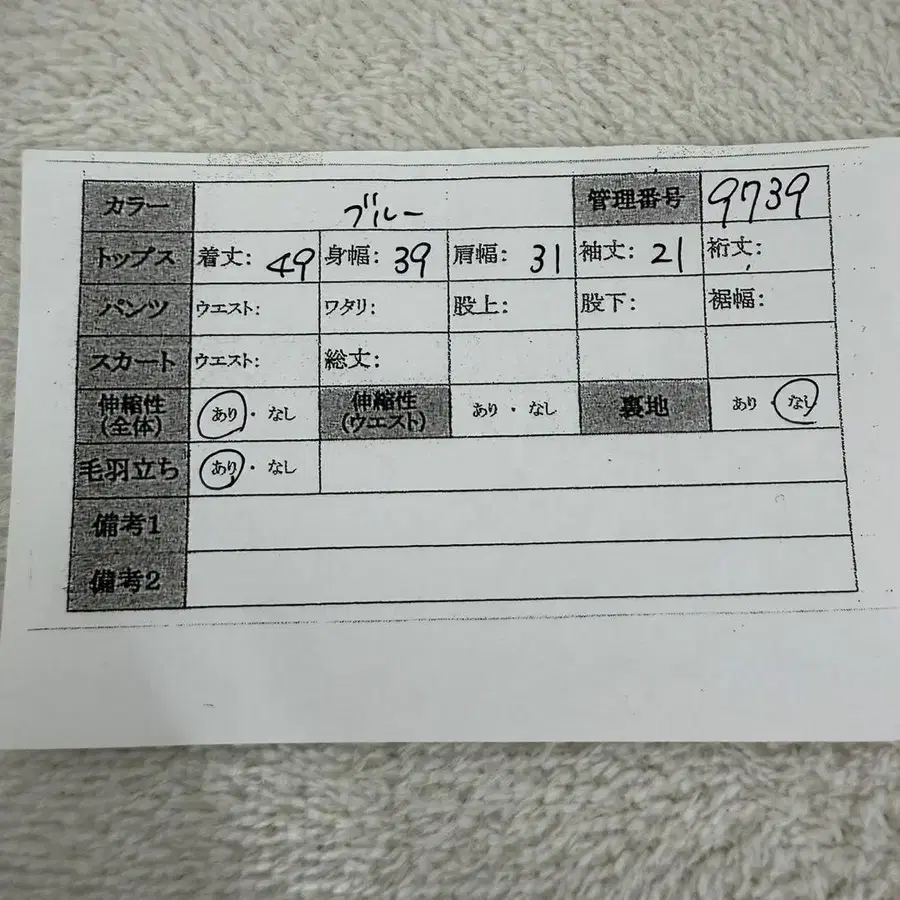 カラー ブルー 管理番号 9739
トップス 着丈: 49 身幅: 39 肩幅: 31 袖丈: 21 裄丈:
パンツ ウエスト: ワタリ: 股上: 股下: 裾幅:
スカート ウエスト: 総丈:
伸縮性(全体) あり・なし 伸縮性(ウエスト) あり・なし 裏地 あり・なし
毛羽立ち あり・なし
備考1
備考2